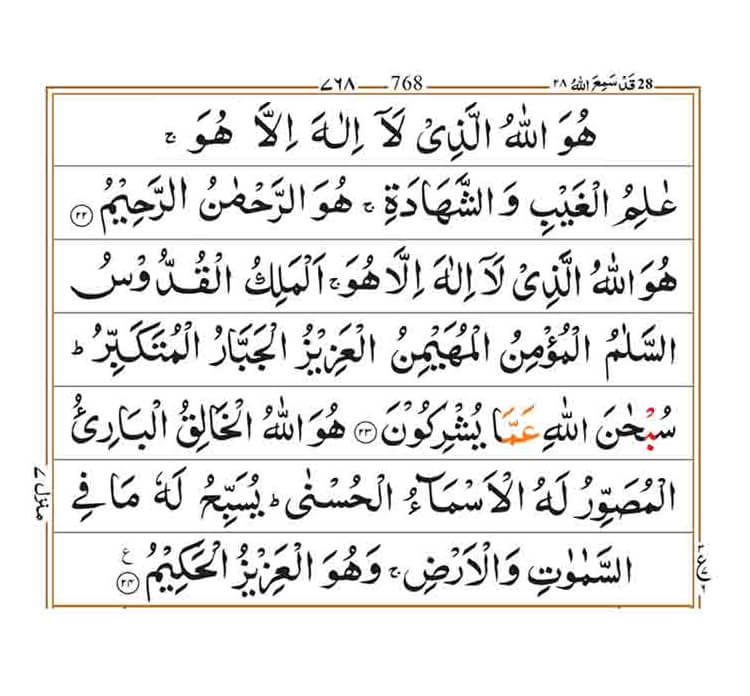 28 قَدْ سَمِعَ اللهُ ۲۸ 768 ۷۶۸
هُوَ اللّٰهُ الَّذِیْ لَاۤ اِلٰهَ اِلَّا هُوَ ۚ
عٰلِمُ الْغَیْبِ وَالشَّهَادَةِ ۚ هُوَ الرَّحْمٰنُ الرَّحِیْمُ ﴿۲۲﴾
هُوَ اللّٰهُ الَّذِیْ لَاۤ اِلٰهَ اِلَّا هُوَ ۚ اَلْمَلِكُ الْقُدُّوْسُ
السَّلٰمُ الْمُؤْمِنُ الْمُهَیْمِنُ الْعَزِیْزُ الْجَبَّارُ الْمُتَكَبِّرُ ؕ
سُبْحٰنَ اللّٰهِ عَمَّا یُشْرِكُوْنَ ﴿۲۳﴾ هُوَ اللّٰهُ الْخَالِقُ الْبَارِئُ
الْمُصَوِّرُ لَهُ الْاَسْمَآءُ الْحُسْنٰی ؕ یُسَبِّحُ لَهٗ مَا فِی
السَّمٰوٰتِ وَالْاَرْضِ ۚ وَهُوَ الْعَزِیْزُ الْحَكِیْمُ ﴿۲۴﴾ ع
منزل ۷